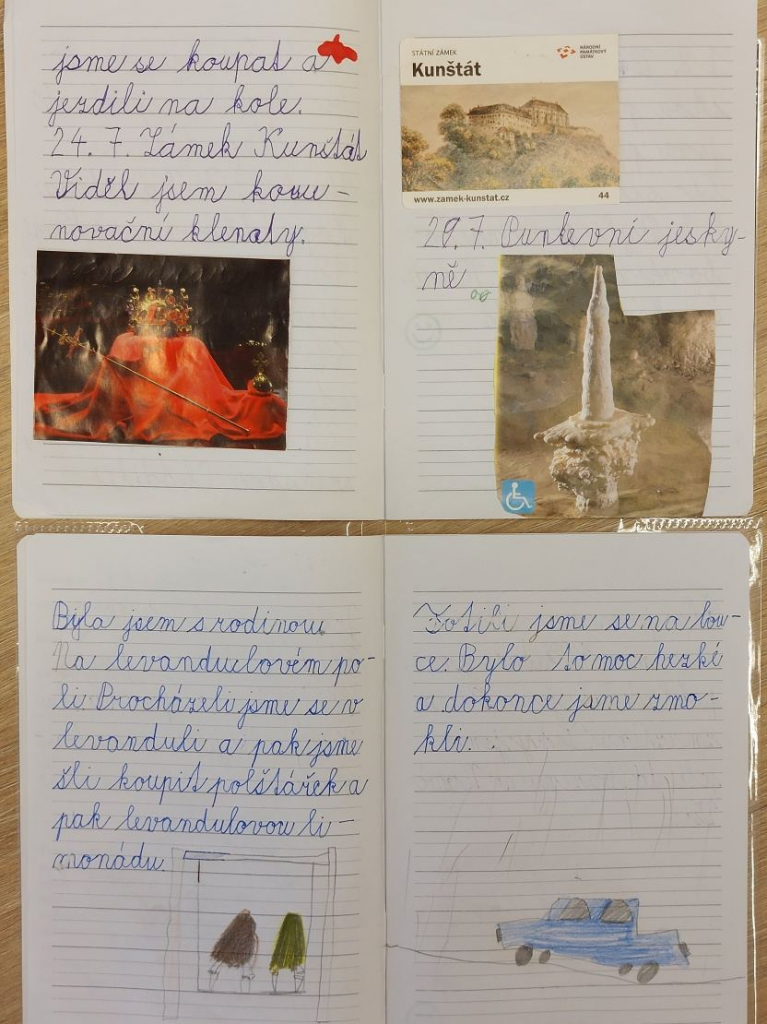 jsme se koupat a
jezdili na kole.
24. 7. Zámek Kunštát
Viděl jsem koru-
novační klenoty.
STÁTNÍ ZÁMEK
Kunštát
NÁRODNÍ
PAMÁTKOVÝ
ÚSTAV
www.zamek-kunstat.cz
44
29. 7. Punkevní jesky-
ně
Byla jsem s rodinou
Na levandulovém po-
li Procházeli jsme se v
levanduli a pak jsme
šli koupit polštářek a
pak levandulovou li-
monádu.
Fotili jsme se na lou-
ce. Bylo to moc hezké
a dokonce jsme zmo-
kli.